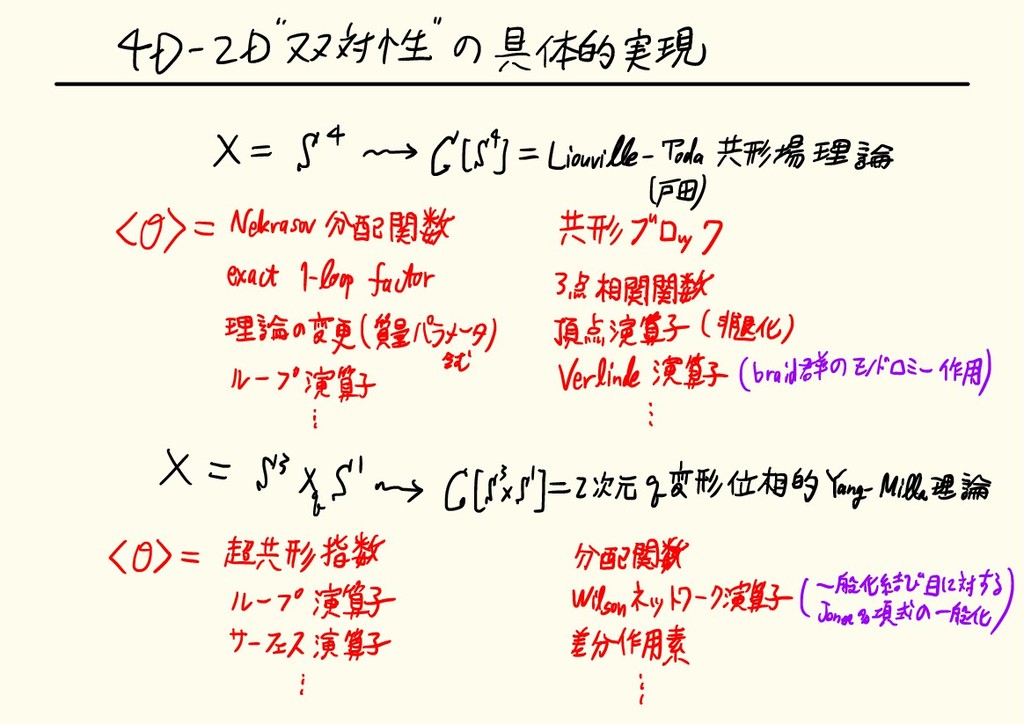 4D-2D"双対性"の具体的実現
X = S⁴ ⇝ C[S⁴] = Liouville-Toda 共形場理論
(戸田)
<O> = Nekrasov 分配関数 共形ブロック
exact 1-loop factor 3点相関関数
理論の変更(質量パラメータ含む) 頂点演算子(非退化)
ループ演算子 Verlinde 演算子 (braid群のモノドロミー作用)
⋮ ⋮
X = S³ ×q S¹ ⇝ C[S³×S¹] = 2次元 q変形位相的 Yang-Mills理論
<O> = 超共形指数 分配関数
ループ演算子 Wilsonネットワーク演算子 (一般化結び目に対する
Jones多項式の一般化)
サーフェス演算子 差分作用素
⋮ ⋮